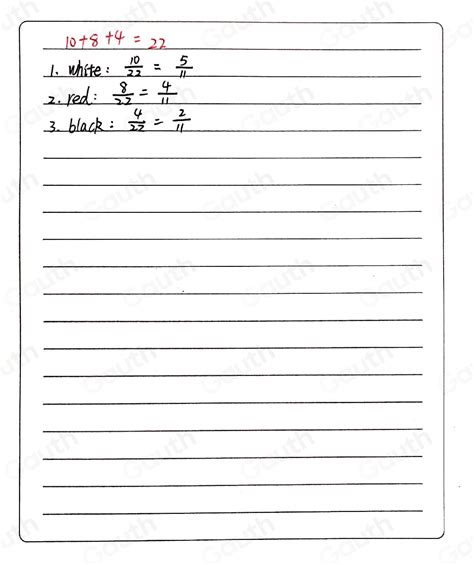 10+8+4=22
1. white: 10/22 = 5/11
2. red: 8/22 = 4/11
3. black: 4/22 = 2/11